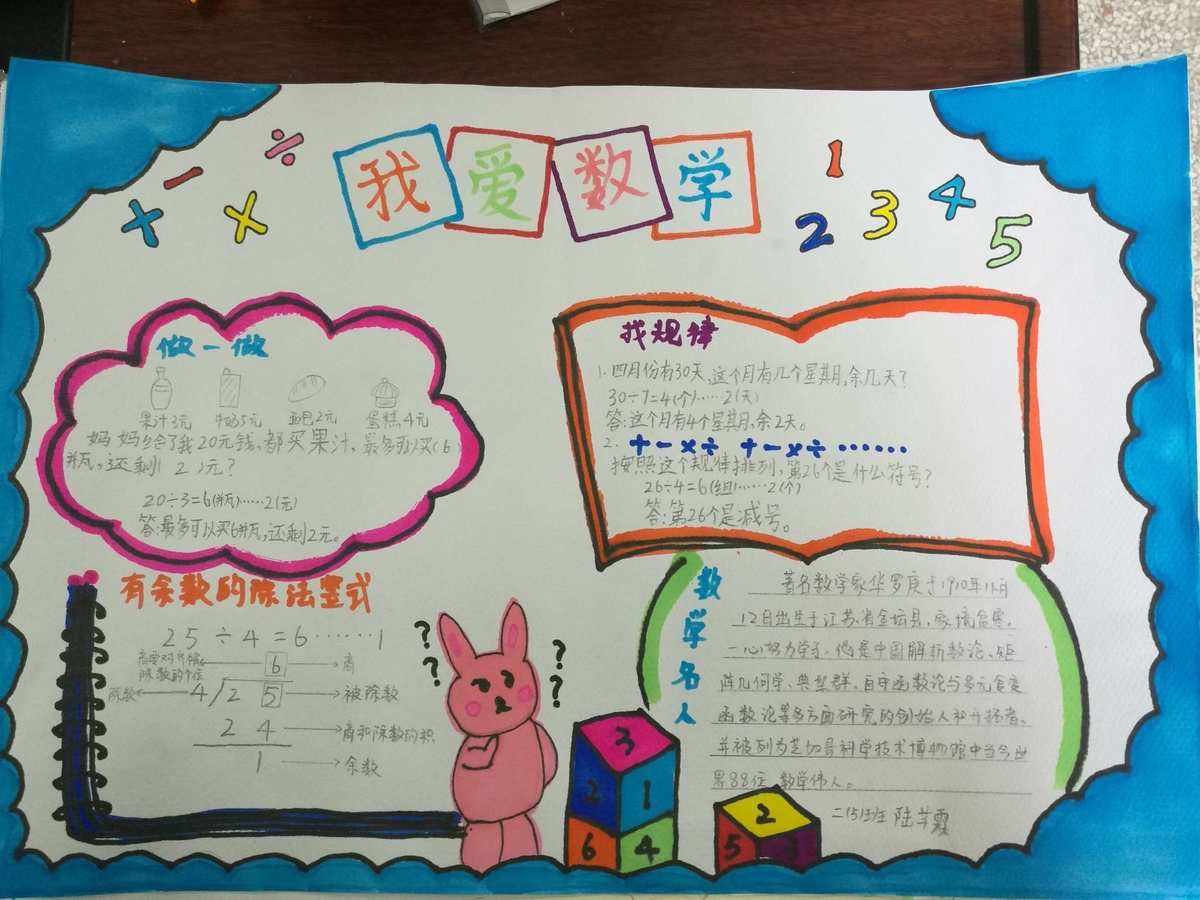 我爱数学
+ − × ÷
1 2 3 4 5
做一做
果汁3元 牛奶5元 面包2元 蛋糕4元
妈妈给了我20元钱,都买果汁,最多可以买(6)
瓶,还剩(2)元?
20÷3=6(瓶)……2(元)
答:最多可以买6瓶,还剩2元。
找规律
1.四月份有30天,这个月有几个星期,余几天?
30÷7=4(个)……2(天)
答:这个月有4个星期,余2天。
2. +−×÷ +−×÷ ……
按照这个规律排列,第26个是什么符号?
26÷4=6(组)……2(个)
答:第26个是减号。
有余数的除法竖式
25÷4=6……1
商要对齐被
除数的个位
6 商
除数 4 25 被除数
24 商和除数的积
1 余数
? ? ? ? ? ?
数学名人
著名数学家华罗庚于1910年11月
12日出生于江苏省金坛县,家境贫寒,
一心努力学习,他是中国解析数论、矩
阵几何学、典型群、自守函数论与多元复变
函数论等多方面研究的创始人和开拓者。
并被列为芝加哥科学技术博物馆中当今世
界88位 数学伟人。
3
2 1
6 4
2
5 3
二(5)班 陆芊霞